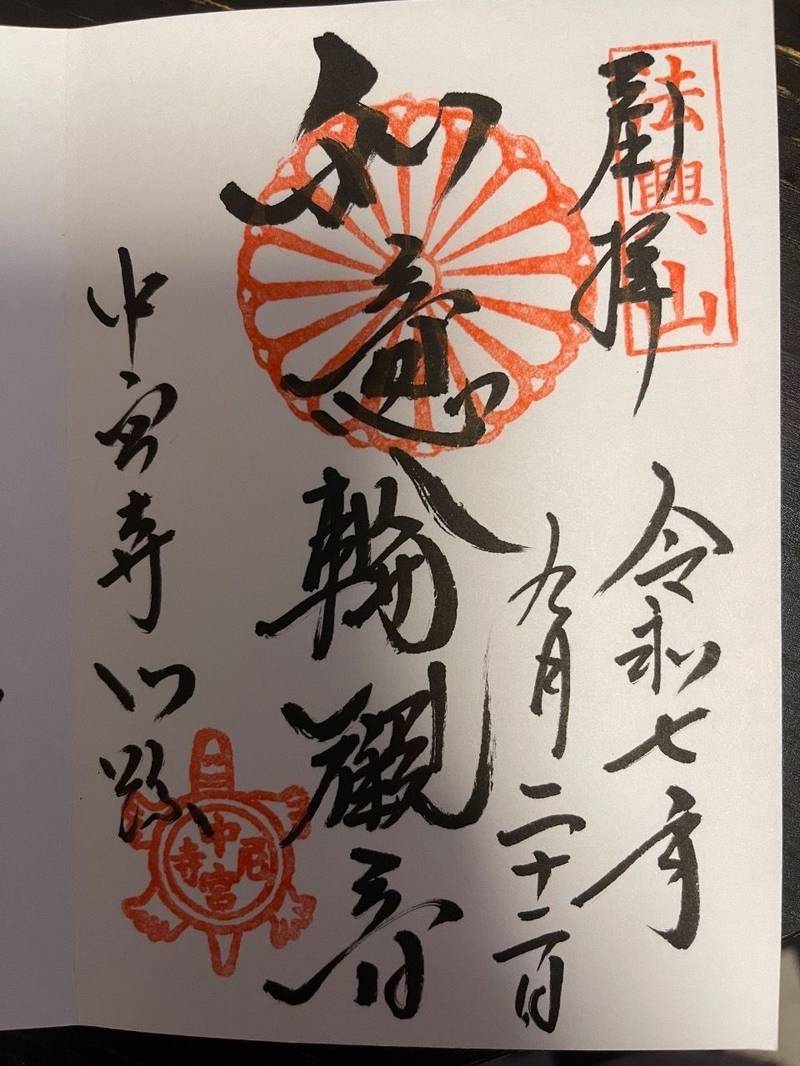 法興山
奉拝
令和七年
九月二十二日
如意輪観音
中宮寺門跡
中宮尼寺